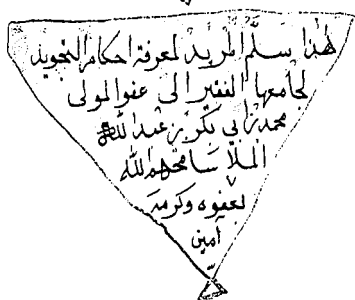 هذا سلّم المريد لمعرفة احكام التجويد
لجامعها الفقير الى عفو المولى
محمد بن ابي بكر بن عبد الله
الملا سامحهم الله
بعفوه وكرمه
آمين